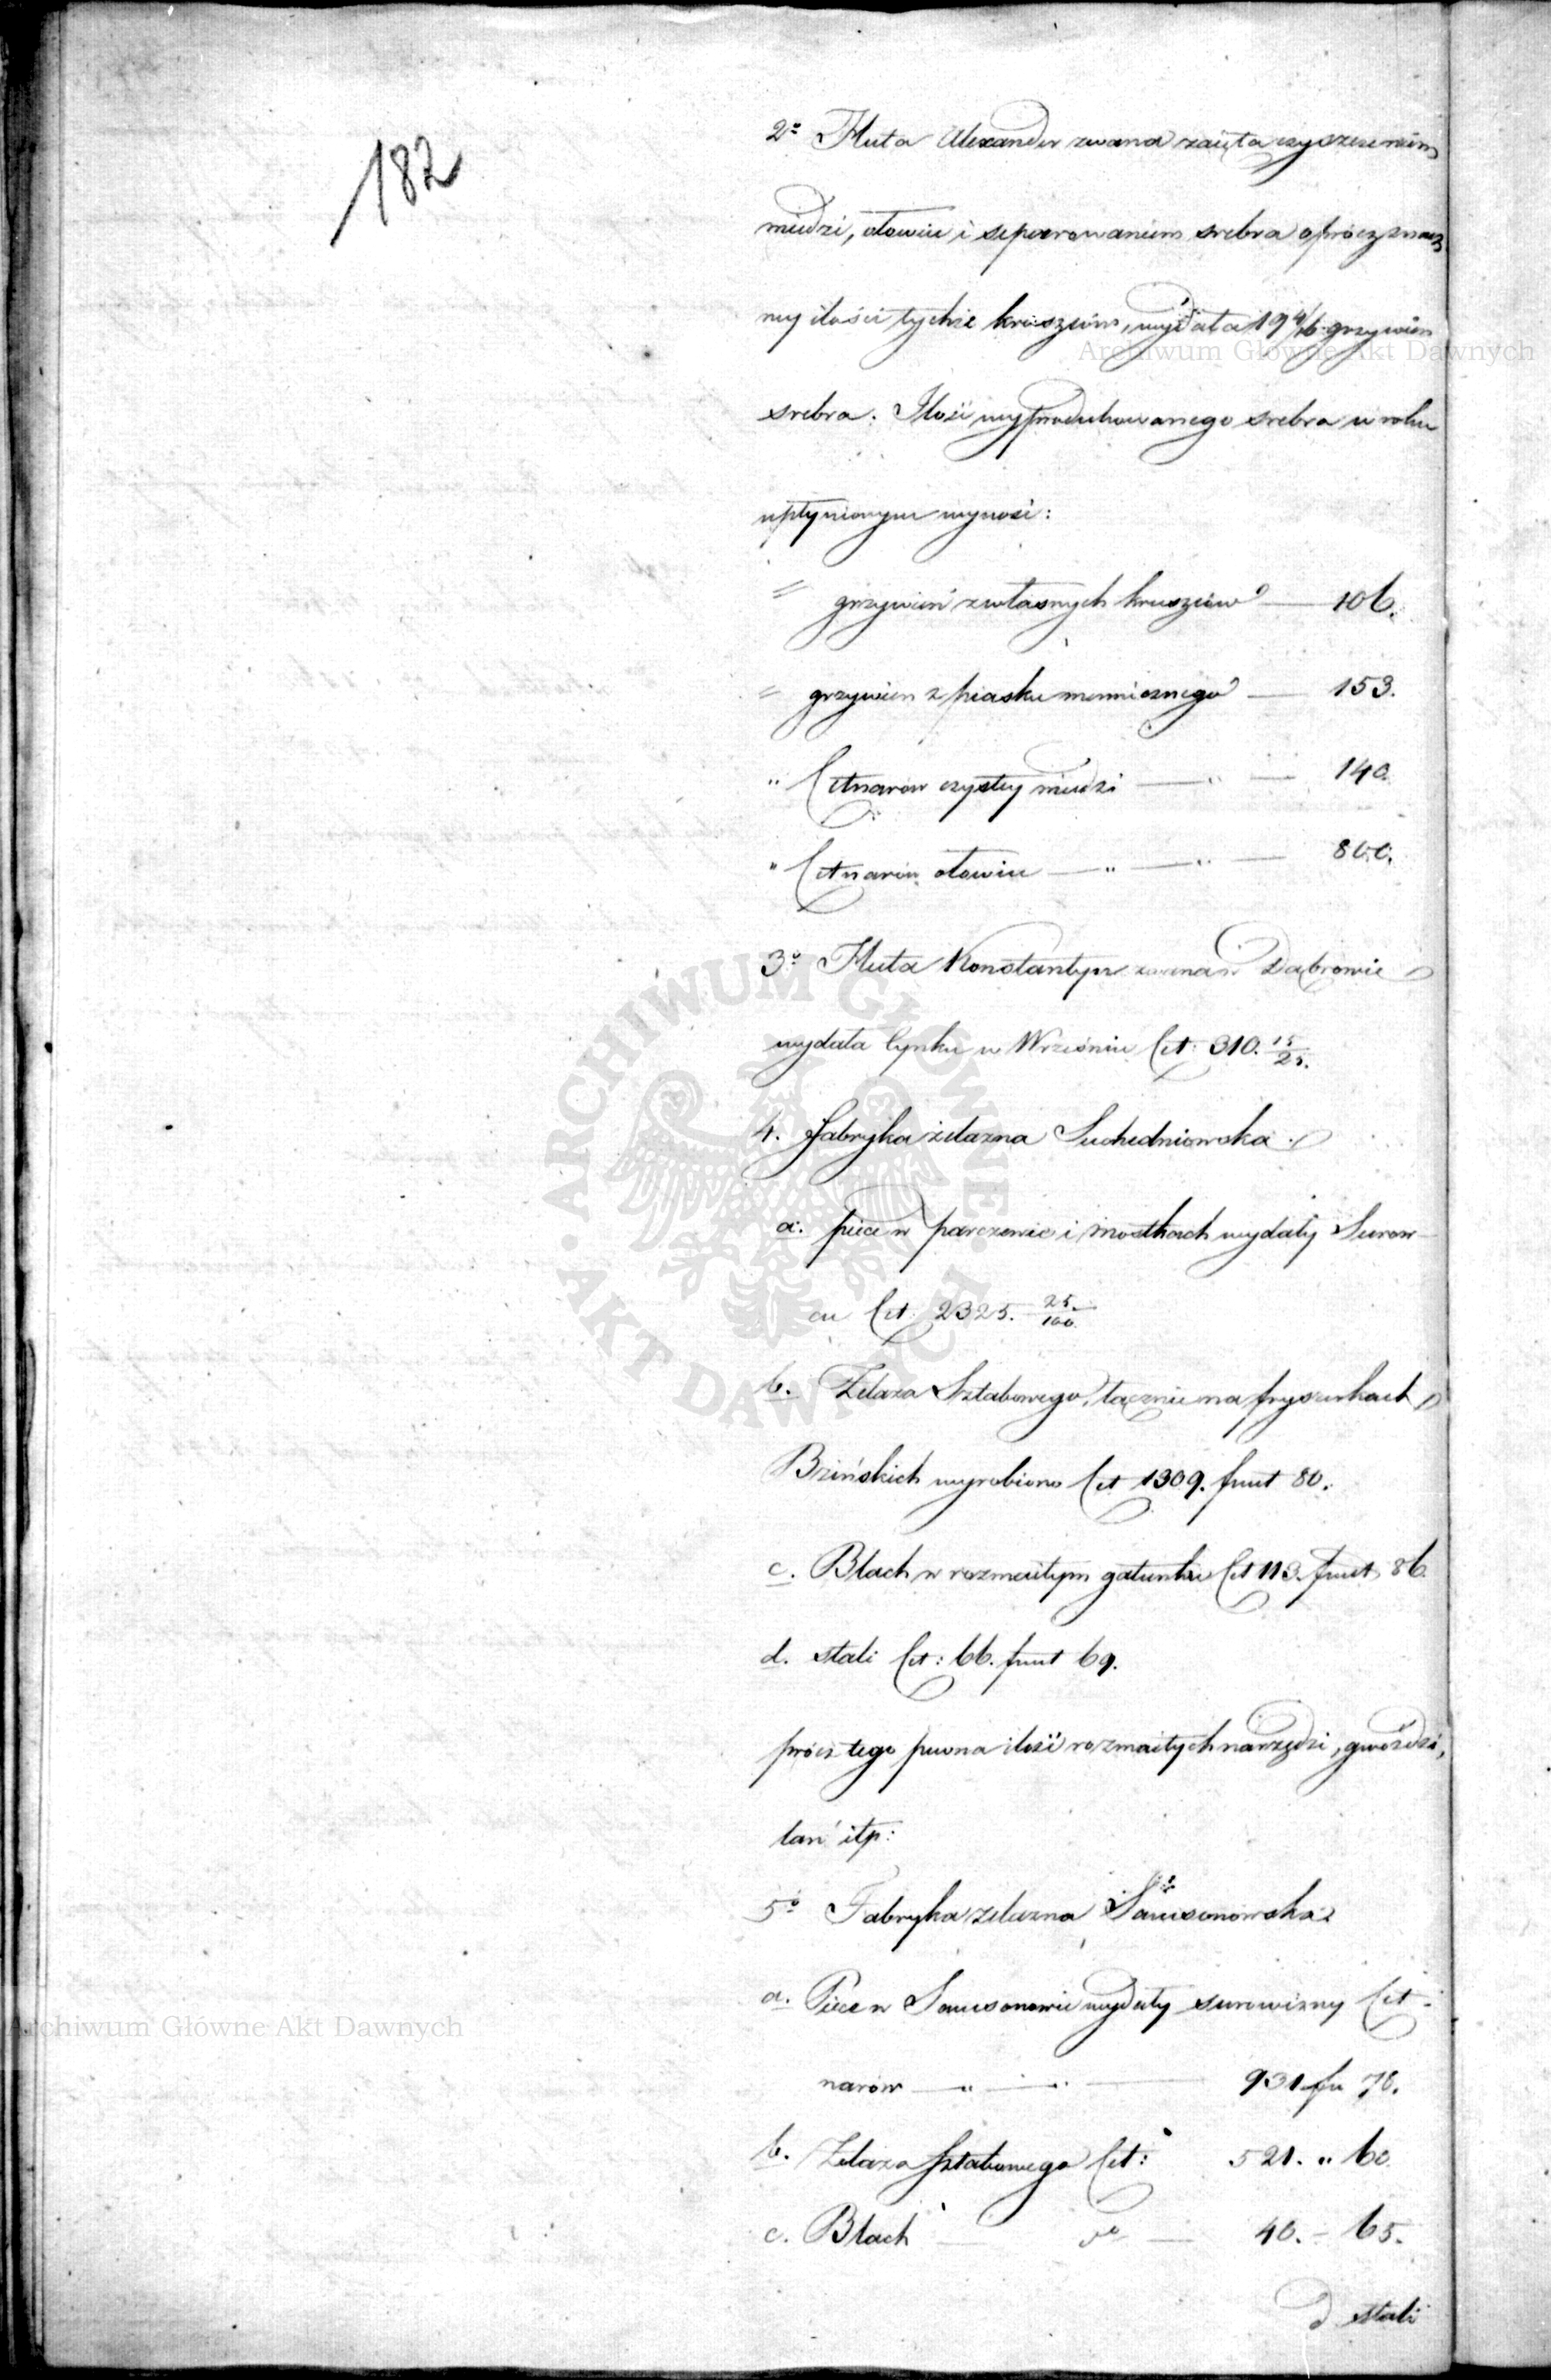 182
2o Huta Alexander zwana zaięta czyszczeniem
miedzi, ołowiu i separowaniem srebra oprócz znacz
ney ilości tychże kruszców, wydała 19 4/16 grzywien
srebra. Ilość wyprodukowanego srebra w roku
upłynionym wynosi:
" grzywień z własnych kruszców — 106.
" grzywien z piasku mennicznego — 153.
" Cetnarów czystey miedzi — " — 140.
" Cetnarów ołowiu — " — " — 800.
3o Huta Konstantyn zwana w Dąbrowie
wydała Cynku w Wrześniu Cet: 310. 15/25.
4. Fabryka żelazna Suchedniowska.
a. piece w parszowie i mostkach wydały Surow
cu Cet: 2325. 25/100.
b. Żelaza Sztabowego, łącznie na fryszerkach
Brzińskich wyrobiono Cet 1309. funt 80.
c. Blach w rozmaitym gatunku Cet 113. funt 86.
d. stali Cet: 66. funt 69.
prócz tego pewna ilość rozmaitych narzędzi, gwoździ,
lań itp:
5o Fabryka żelazna Samsonowska
a. Piece w Samsonowie wydały surowizny Cet-
narów — " — " — 931 fu 78.
b. Żelaza sztabowego Cet: 521. " 60.
c. Blach — do — 40. - 65.
d stali
Archiwum Główne Akt Dawnych
ARCHIWUM GŁÓWNE AKT DAWNYCH
Archiwum Główne Akt Dawnych